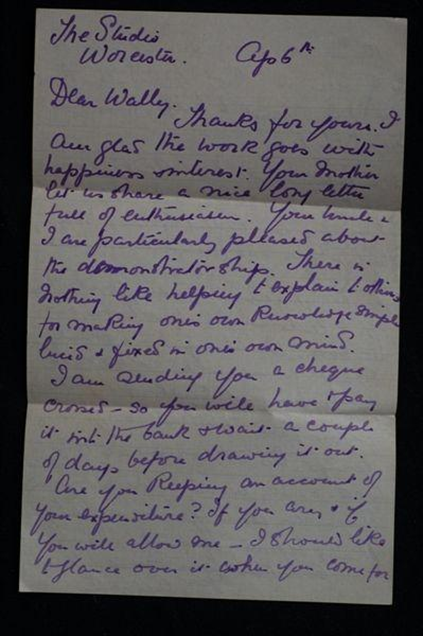 The Studio
Worcester. Ap 6th
Dear Wally.
Thanks for yours. I
am glad the work goes with
happiness & interest. Your Mother
let us share a nice long letter
full of enthusiasm. Your Uncle &
I are particularly pleased about
the demonstratorships. There is
nothing like helping & explain to others
for making one's own knowledge simple
lucid & fixed in one's own mind.
I am sending you a cheque
crossed – so you will have to pay
it into the bank & wait a couple
of days before drawing it out.
Are you keeping an account of
your expenditure? If you are, & if
you will allow me – I should like
to glance over it when you come for